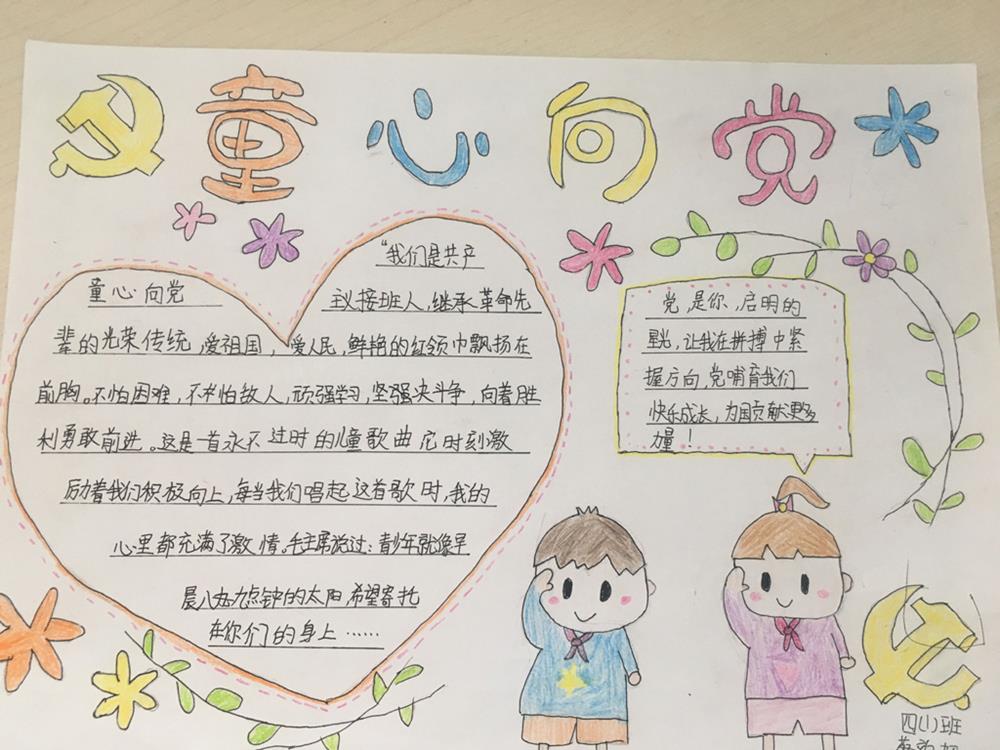 童心向党
童心向党
“我们是共产
主义接班人,继承革命先
辈的光荣传统,爱祖国,爱人民,鲜艳的红领巾飘扬在
前胸。不怕困难,不怕敌人,顽强学习,坚强决斗争,向着胜
利勇敢前进。这是一首永不过时的儿童歌曲它时刻激
励着我们积极向上,每当我们唱起这首歌时,我的
心里都充满了激情。毛主席说过:青少年就像早
晨八九点钟的太阳,希望寄托
在你们的身上……
党,是你,启明的
星光,让我在拼搏中紧
握方向,党哺育我们
快乐成长,为国贡献更多
力量!
四(1)班